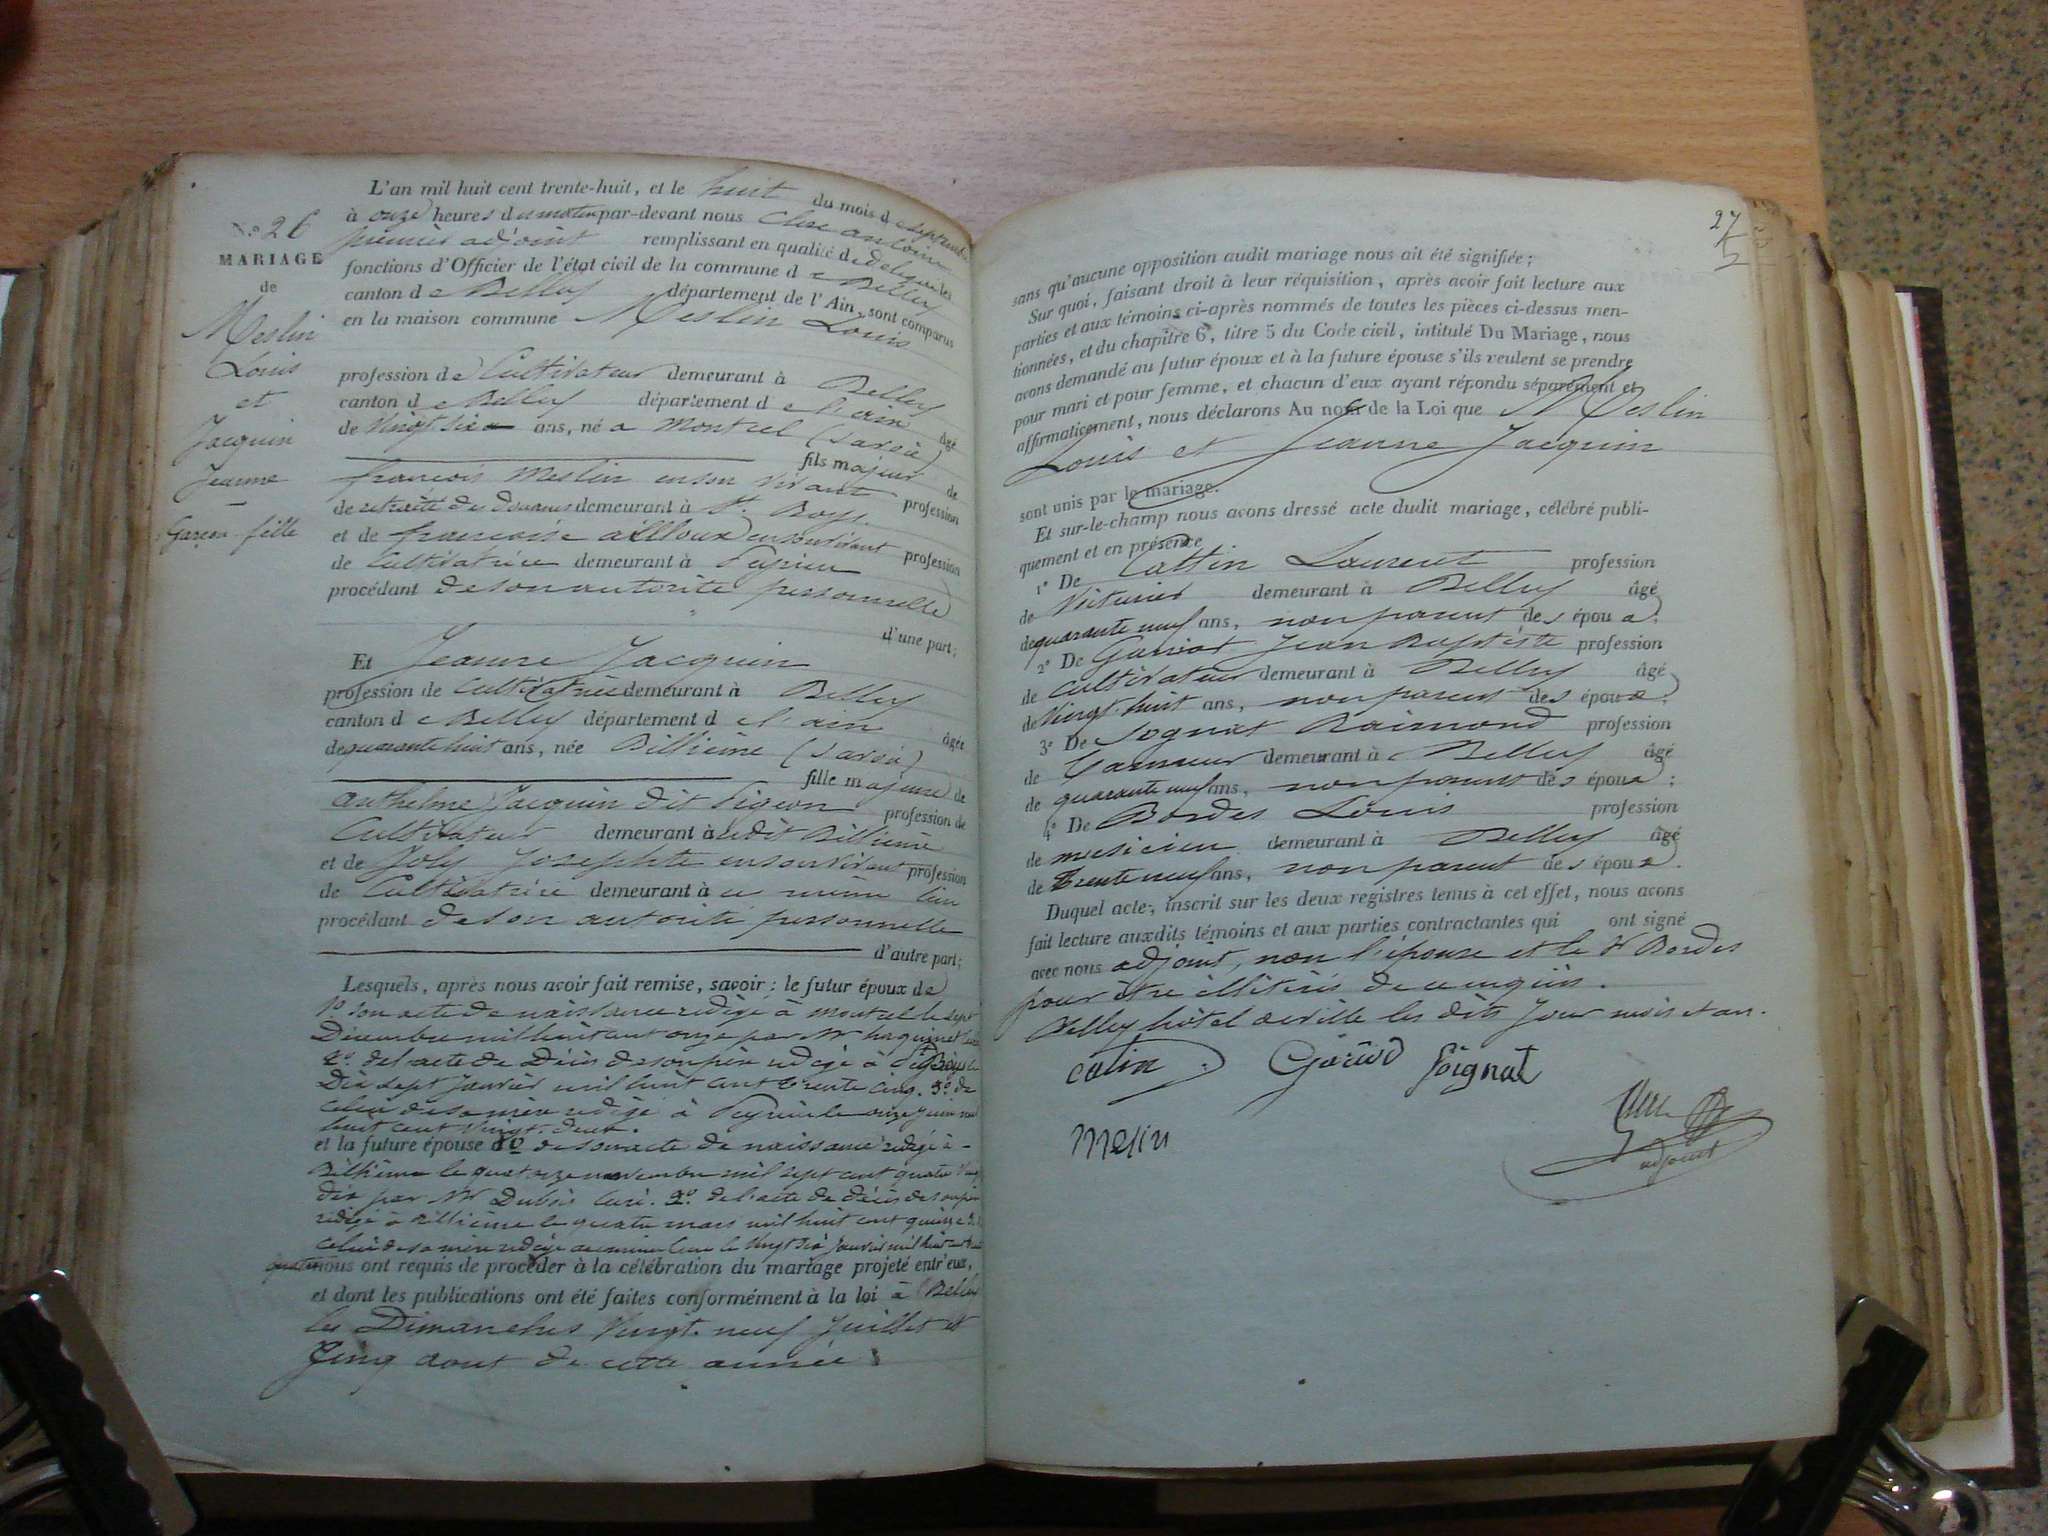 N.o 26
MARIAGE
de
Meslin
Louis
et
Jacquin
Jeanne
Garçon-fille
L'an mil huit cent trente-huit, et le huit du mois de septembre
à onze heures du matin par-devant nous
premier adjoint remplissant en qualité de délégué les
fonctions d'Officier de l'état civil de la commune de Belley
canton de Belley département de l'Ain, sont comparus
en la maison commune Meslin Louis
profession de Cultivateur demeurant à Belley
canton de Belley département de l'ain âgé
de Vingt six ans, né a (Savoie)
fils majeur de
françois Meslin en son vivant profession
de retraité des douanes demeurant à St. Boys
et de francoise en son vivant profession
de Cultivatrice demeurant à Peyrieu
procédant de son autorité personnelle
d'une part;
Et Jeanne Jacquin
profession de Cultivatrice demeurant à Belley
canton de Belley département de l'ain âgée
de quarante huit ans, née Billième (Savoie)
fille majeure de
anthelme Jacquin dit Pigeon profession de
Cultivateur demeurant à udit Billième
et de Joly Josephte en son vivant profession
de Cultivatrice demeurant à ce même lieu
procédant de son autorité personnelle
d'autre part;
Lesquels, après nous avoir fait remise, savoir: le futur époux de
1o son acte de naissance rédigé à le sept
Décembre mil huit cent onze par Mr
2o de l'acte de Décès de son père rédigé à St Boys le
Dix sept Janvier mil huit cent trente cinq. 3o de
celui de sa mère rédigé à Peyrieu le onze Juin mil
huit cent Vingt-deux.
et la future épouse d 1o de son acte de naissance rédigé à
Billième le quatorze novembre mil sept cent quatre Vingt
dix par Mr Dubois Curé. 2o de l'acte de décès de son père
rédigé à Billième le quatre mars mil huit cent quinze 3o
celui de sa mère rédigé au même lieu le Vingt six Janvier mil huit cent
quatre nous ont requis de procéder à la célébration du mariage projeté entr'eux,
et dont les publications ont été faites conformément à la loi à Belley
les Dimanches Vingt-neuf Juillet et
Cinq aout de cette année
27
sans qu'aucune opposition audit mariage nous ait été signifiée;
Sur quoi, faisant droit à leur réquisition, après avoir fait lecture aux
parties et aux témoins ci-après nommés de toutes les pièces ci-dessus men-
tionnées, et du chapitre 6e, titre 5 du Code civil, intitulé Du Mariage, nous
avons demandé au futur époux et à la future épouse s'ils veulent se prendre
pour mari et pour femme, et chacun d'eux ayant répondu séparément et
affirmativement, nous déclarons Au nom de la Loi que Meslin
Louis et Jeanne Jacquin
sont unis par le mariage.
Et sur-le-champ nous avons dressé acte dudit mariage, célébré publi-
quement et en présence
1o De Cattin Laurent profession
de Voiturier demeurant à Belley âgé
de quarante neuf ans, non parent des époux;
2o De Jean Baptiste profession
de Cultivateur demeurant à Belley âgé
de Vingt huit ans, non parent des époux;
3e De Sognat Raimond profession
de Tanneur demeurant à Belley âgé
de quarante neuf ans, non parent des époux;
4e De Bordes Louis profession
de musicien demeurant à Belley âgé
de trente neuf ans, non parent des époux.
Duquel acte, inscrit sur les deux registres tenus à cet effet, nous avons
fait lecture auxdits témoins et aux parties contractantes qui ont signé
avec nous adjoint, non l'épouse et le Sr Bordes
pour être illitérés de ce enquis.
Belley hôtel de ville les dits Jour mois et an.
catin Soignat
Meslin
adjoint